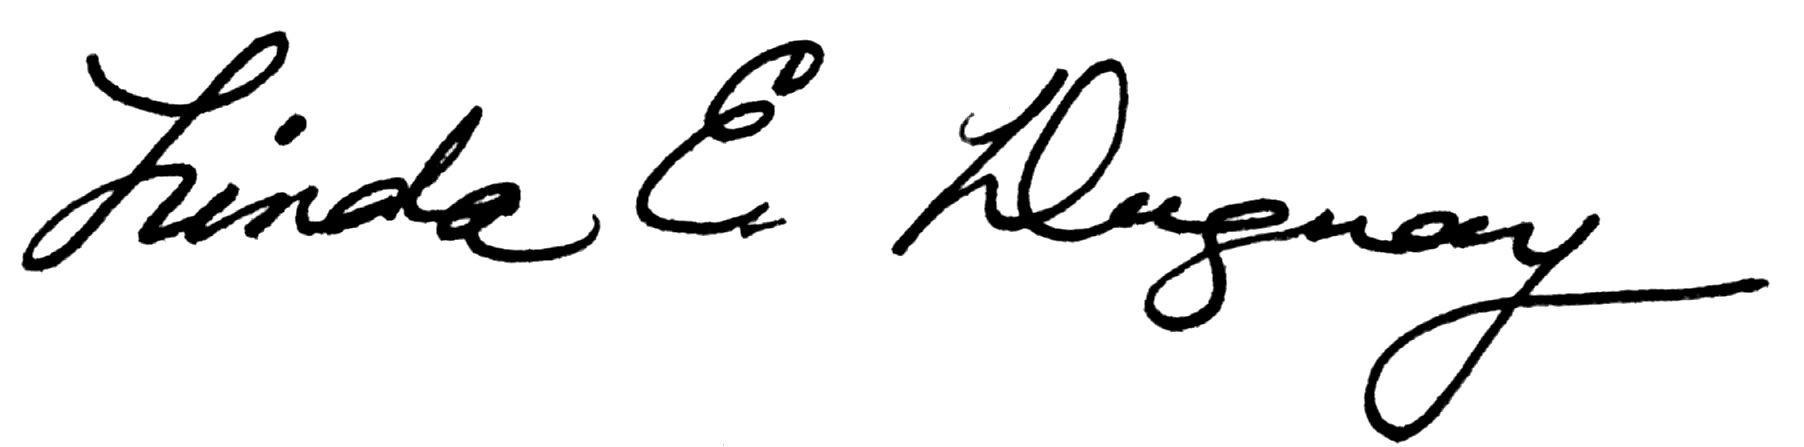 Linda E. Duguay